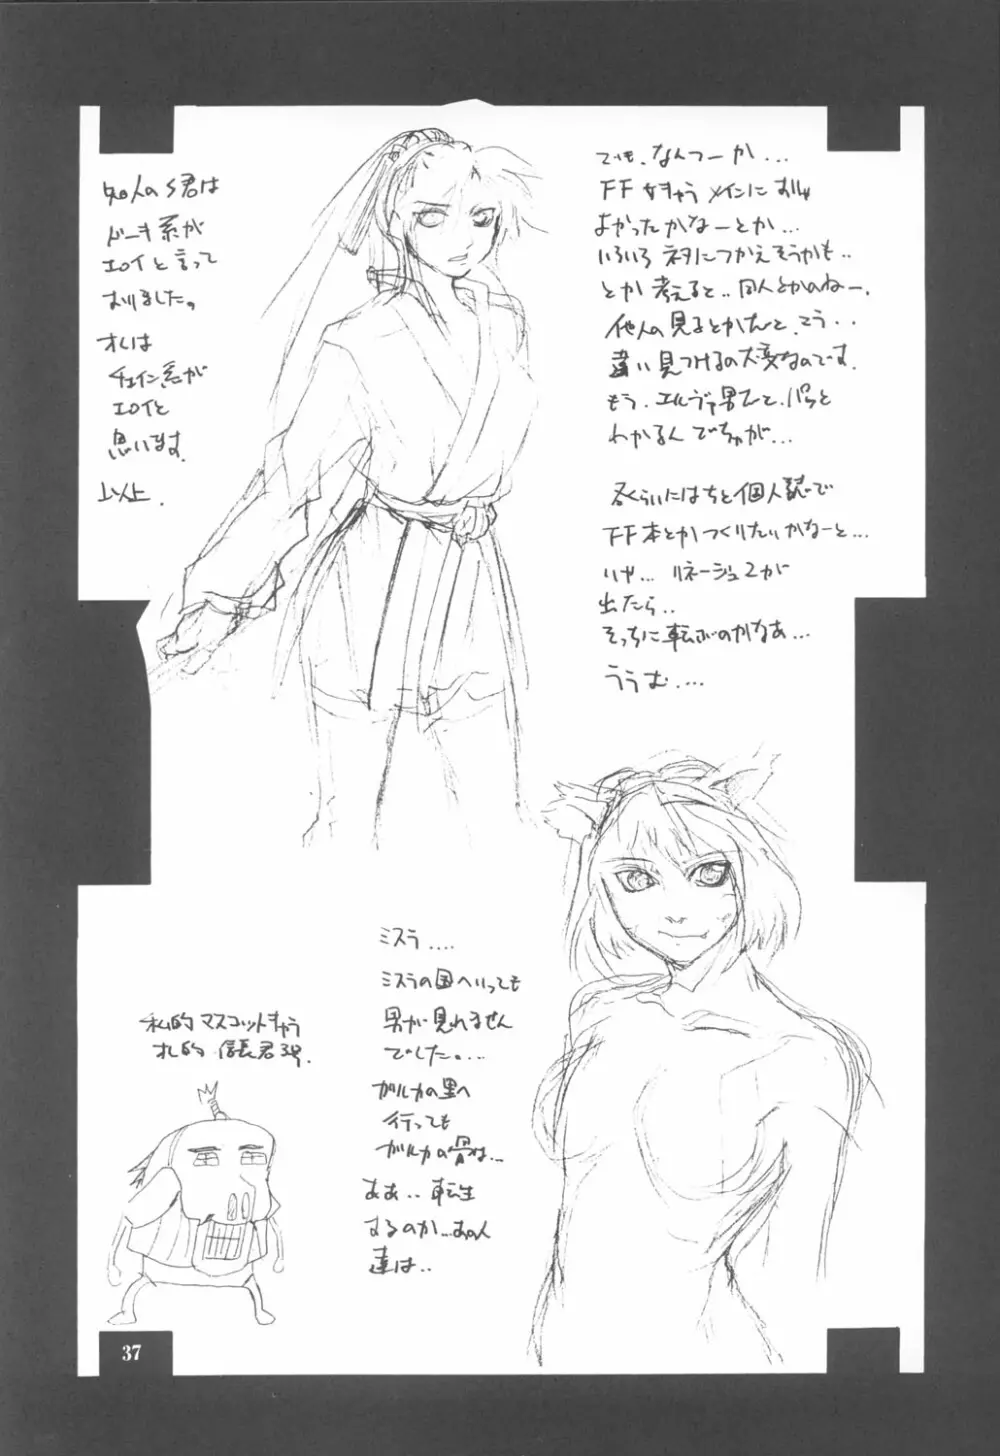 知人のS君は
ドーキ系が
エロイと言って
おりました。
オレは
チェイン系が
エロイと
思います。
以上.
でも、なんつーか...
FF
メインに
よかったかなーとか...
いろいろ ネタにつかえそうかも..
とか 考えると.. 同人とかのねー.
他人の見るとかだと、こう..
違い見つけるの大変なのです.
もう、エルヴァ男だと、パッと
わかるんでちゅが...
冬くらいにはちと個人誌で
FF本とかつくりたいかなーと...
いや... リネージュ2が
出たら..
そっちに転ぶのかなあ...
ううむ....
ミスラ....
ミスラの国へいっても
男が見れません
でした....
ガルカの里へ
行っても
ガルカの骨は...
ああ.. 転生
するのか...あの人
達は..
私的 マスコットキャラ
オレ的 信長君
37